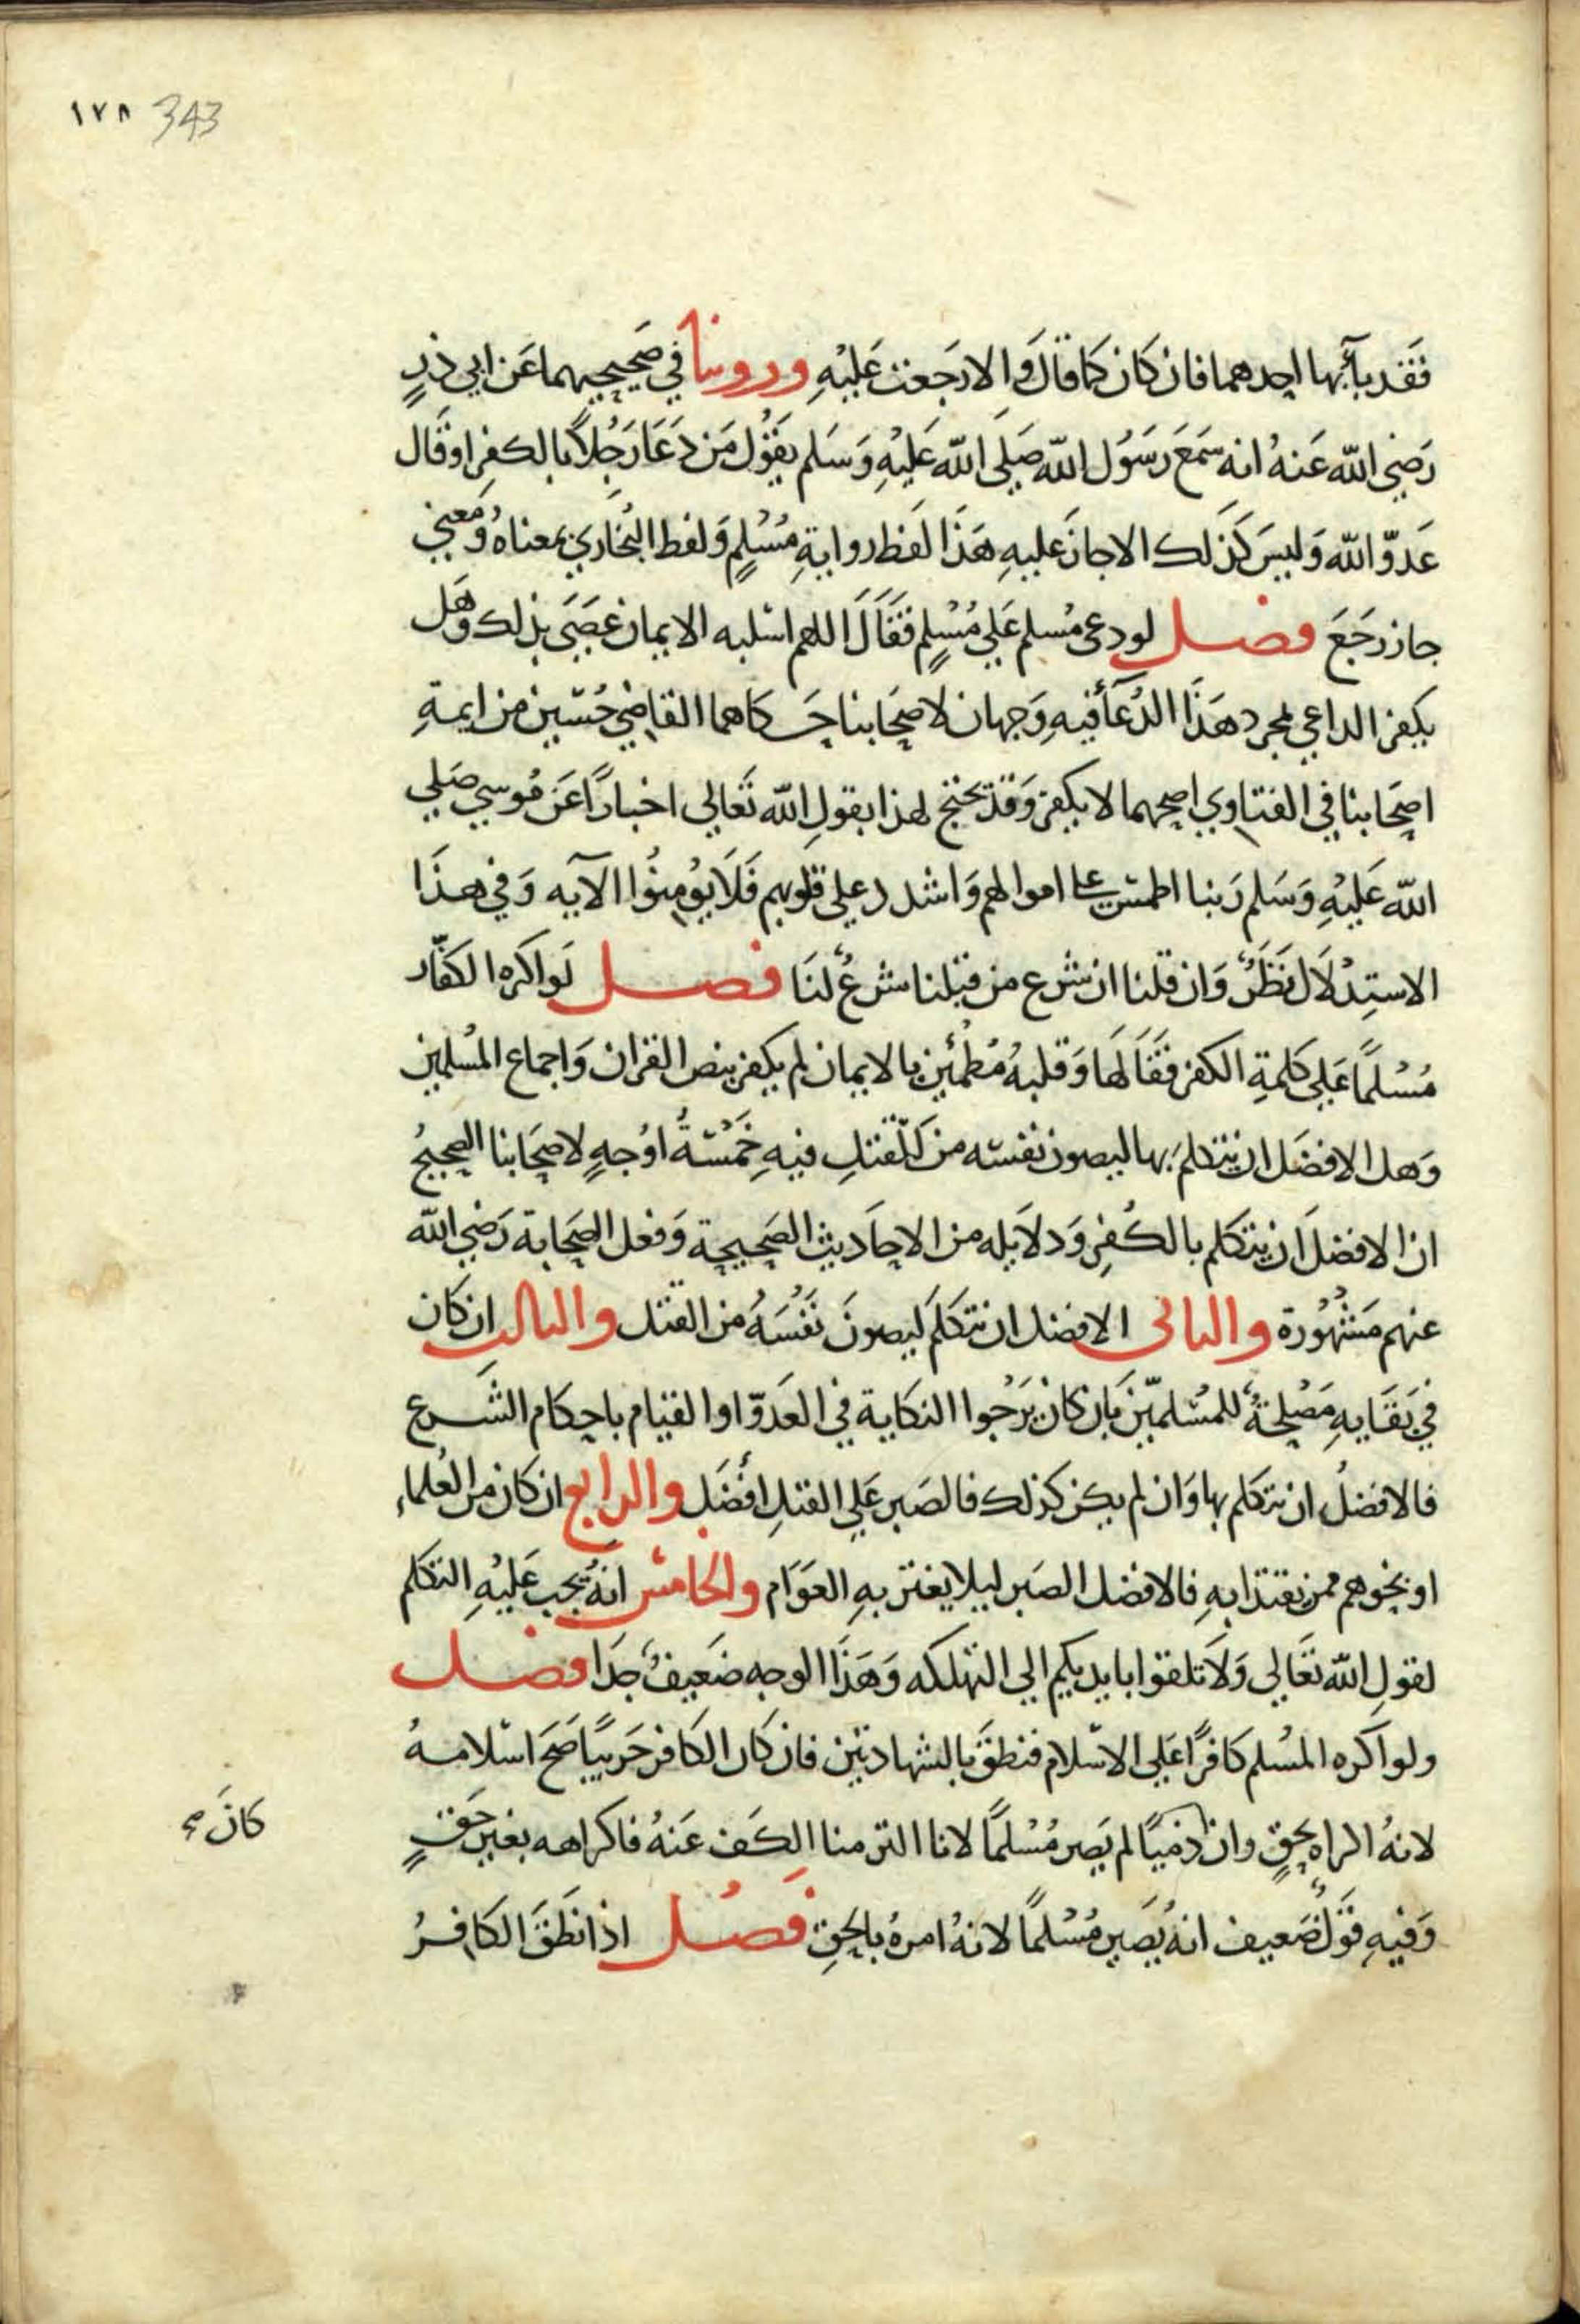 ١٧٨ 343
فَقَد بآءَ بها احدهما فان كانَ كما قالَ وَالا رَجعت عَليْهِ وروينا في صَحيحيهما عَن ابي ذرٍ
رَضي الله عَنهُ انه سَمعَ رَسُول الله صَلى الله عَليْهِ وَسَلم يقُول مَن دَعَا رَجُلاً بالكفر او قَال
عَدوّ الله وَليسَ كذلك الا حارَ عليهِ هَذَا لفظ روايةِ مُسْلمٍ وَلفظ البُخاري بمعناهُ وَمعنى
حار رَجَعَ فصل لو دعى مُسلم عَلي مُسْلِمٍ فَقَالَ اللهم اسْلبه الايمان عَصَى بذلك وَهَل
يكفر الداعي بمجرد هَذَا الدُعَآ فيهِ وَجهان لاصحَابنا حَكاهما القاضي حُسَين من ايمةِ
اصحَابنا في الفتاوي اصحهما لا يكفر وَقد يحتج لهذا بقولِ الله تَعَالى اخبارًا عَن مُوسي صَلي
الله عَليْهِ وَسَلم رَبنا اطمسْ على اموالهم وَاشدد على قلوبهم فَلَا يُؤمِنُوا الآيه وَفي هذَا
الاستِدْلَال نَظَرٌ وَان قلنا ان شرع من قبْلنا شرعٌ لنَا فصل لَو اكره الكفّار
مُسْلمًا عَلي كلمةِ الكفر فَقَالهَا وَقلبهُ مُطمْئِن بالايمان لم يكفر بنص القران وَاجماع المُسلمين
وَهل الافضَل ان يتكلم بها ليصون نفسَه من القتلِ فيهِ خَمْسَةُ اوْجهٍ لاصحَابنا الصحيحُ
ان الافضلَ ان يتكلم بالكُفِر وَدلايله من الاحَاديث الصَحيحة وَفعل الصحَابة رَضي الله
عنهم مَشْهُورة والثاني الافضل ان يتكلمَ ليصونَ نَفْسَهُ من القتل والثالث ان كان
في بَقَايهِ مَصْلحةٌ للمُسْلمّين بَان كان يَرْجوا النكاية في العَدوّ او القيام باحكام الشَرع
فالافضلُ ان يتكلم بها وَان لم يكن كذلك فالصَبر عَلي القتلِ افْضَل والرابع ان كان من العُلماءِ
او نحوهم ممن يقتدا بهِ فالافضل الصَبر ليلا يغتر بهِ العوَام والخامس انهُ يَجب عَليْهِ التكلم
لقولِ الله تعَالى وَلَا تلقوا بايديكم الى التهلكه وَهَذَا الوجه ضَعيفٌ جدَا فصل
ولو اكره المُسْلم كافرًا عَلى الاسْلام فنطقَ بالشهادتيْن فان كان الكافر حَربيًا صَحَ اسْلامهُ
لانهُ اكراه بحقٍ وان ذميًا لم يَصر مُسْلمًا لانا التزمنا الكَف عَنهُ فاكراهه بغير حَقٍ
كانَ صح
وَفيهِ قَولٌ ضَعيف انهُ يَصَير مُسْلمًا لانهُ امرهُ بالحقِ فَصْل اذا نَطقَ الكافرُ